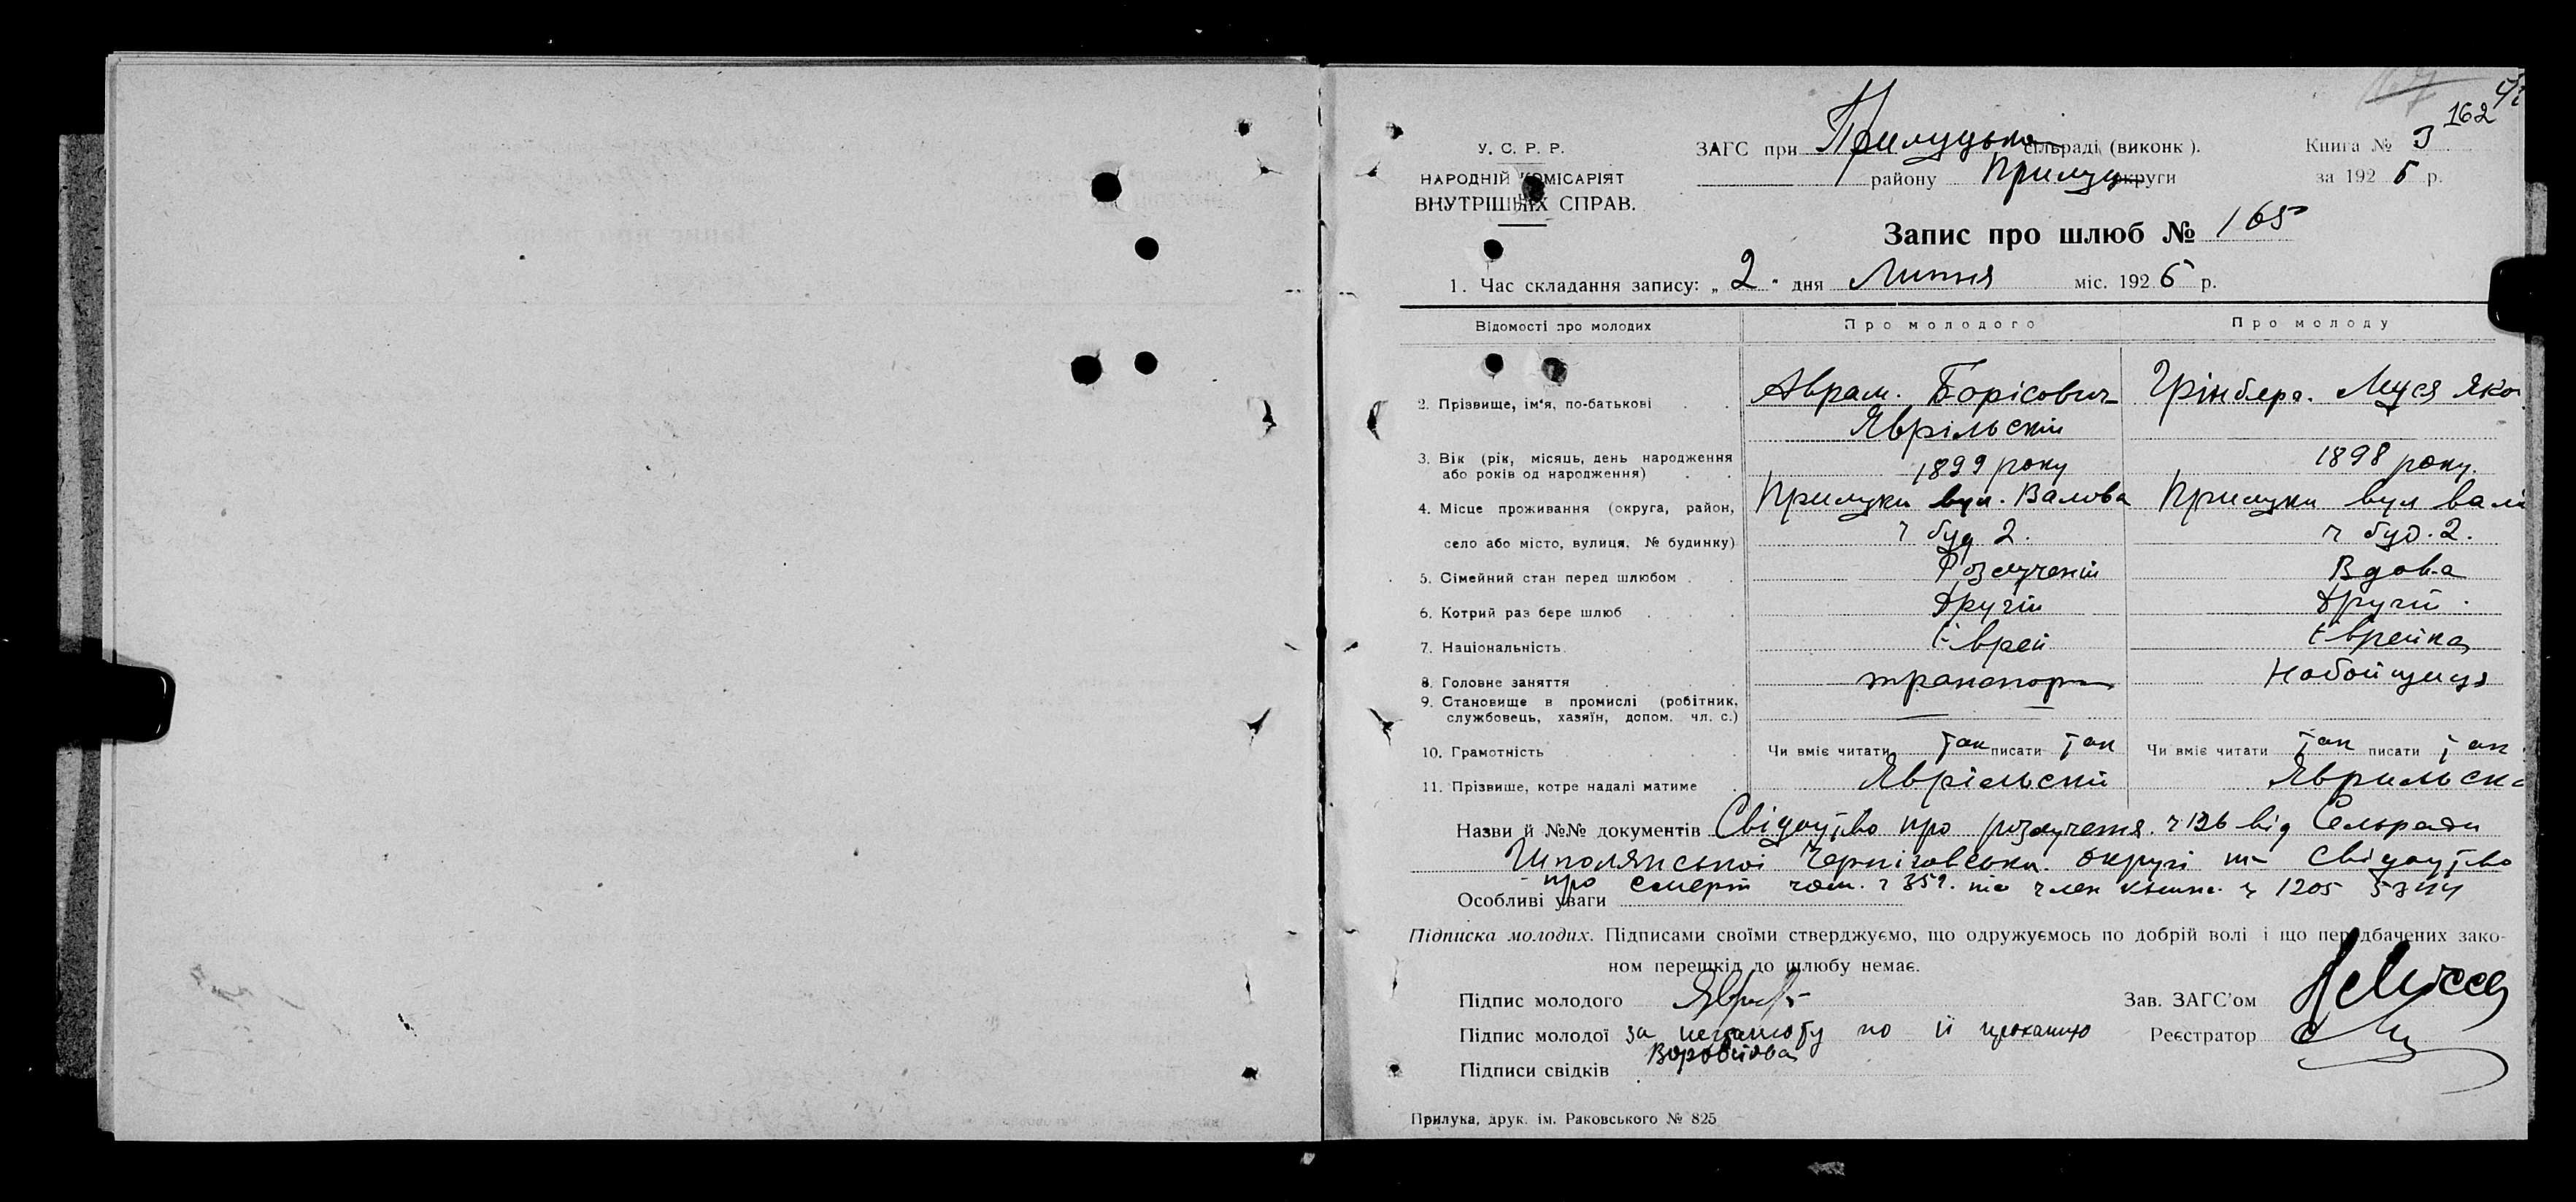 162
У. С. Р. Р.
НАРОДНІЙ КОМІСАРІЯТ
ВНУТРІШНІХ СПРАВ.
ЗАГС при Прилуцькій сільраді (виконк).
району Прилуц округи
Книга № 3
за 1925 р.
Запис про шлюб № 165
1. Час складання запису: „2" дня Липня міс. 1925 р.
Відомості про молодих
Про молодого
Про молоду
2. Прізвище, ім'я, по-батькові
Аврам. Борісович
Яврільскій
Грінберг. Муся Яко
3. Вік (рік, місяць, день народження
або років од народження)
1899 року
1898 року.
4. Місце проживання (округа, район,
село або місто, вулиця, № будинку)
Прилуки вул. Валова
ч буд 2.
Прилуки вул вало
ч буд. 2.
5. Сімейний стан перед шлюбом
Розлученій
Вдова
6. Котрий раз бере шлюб
Другій
Другій
7. Національність
Єврей
Єврейка
8. Головне заняття
транспорт
Набойщиця
9. Становище в промислі (робітник,
службовець, хазяїн, допом. чл. с.)
10. Грамотність
Чи вміє читати так писати так
Чи вміє читати так писати так
11. Прізвище, котре надалі матиме
Яврільскій
Яврильска
Назви й №№ документів Свідоцтво про розлучення ч 126 від Сельради
Чернігівської округи та свідоцтво
про смерть чол. ч 359. та член книж. ч 1205
Особливі уваги
Підписка молодих. Підписами своїми стверджуємо, що одружуємось по добрій волі і що передбачених зако-
ном перешкід до шлюбу немає.
Підпис молодого
Зав. ЗАГС'ом
Підпис молодої за неграмоту по її проханню
Реєстратор
Підписи свідків
Прилука, друк. ім. Раковського № 825